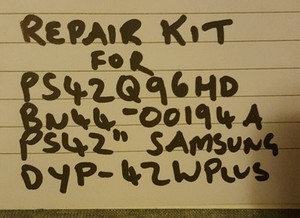 REPAIR KIT
FOR
PS42Q96HD
BN44-00194A
PS42" SAMSUNG
DYP-42WPLUS